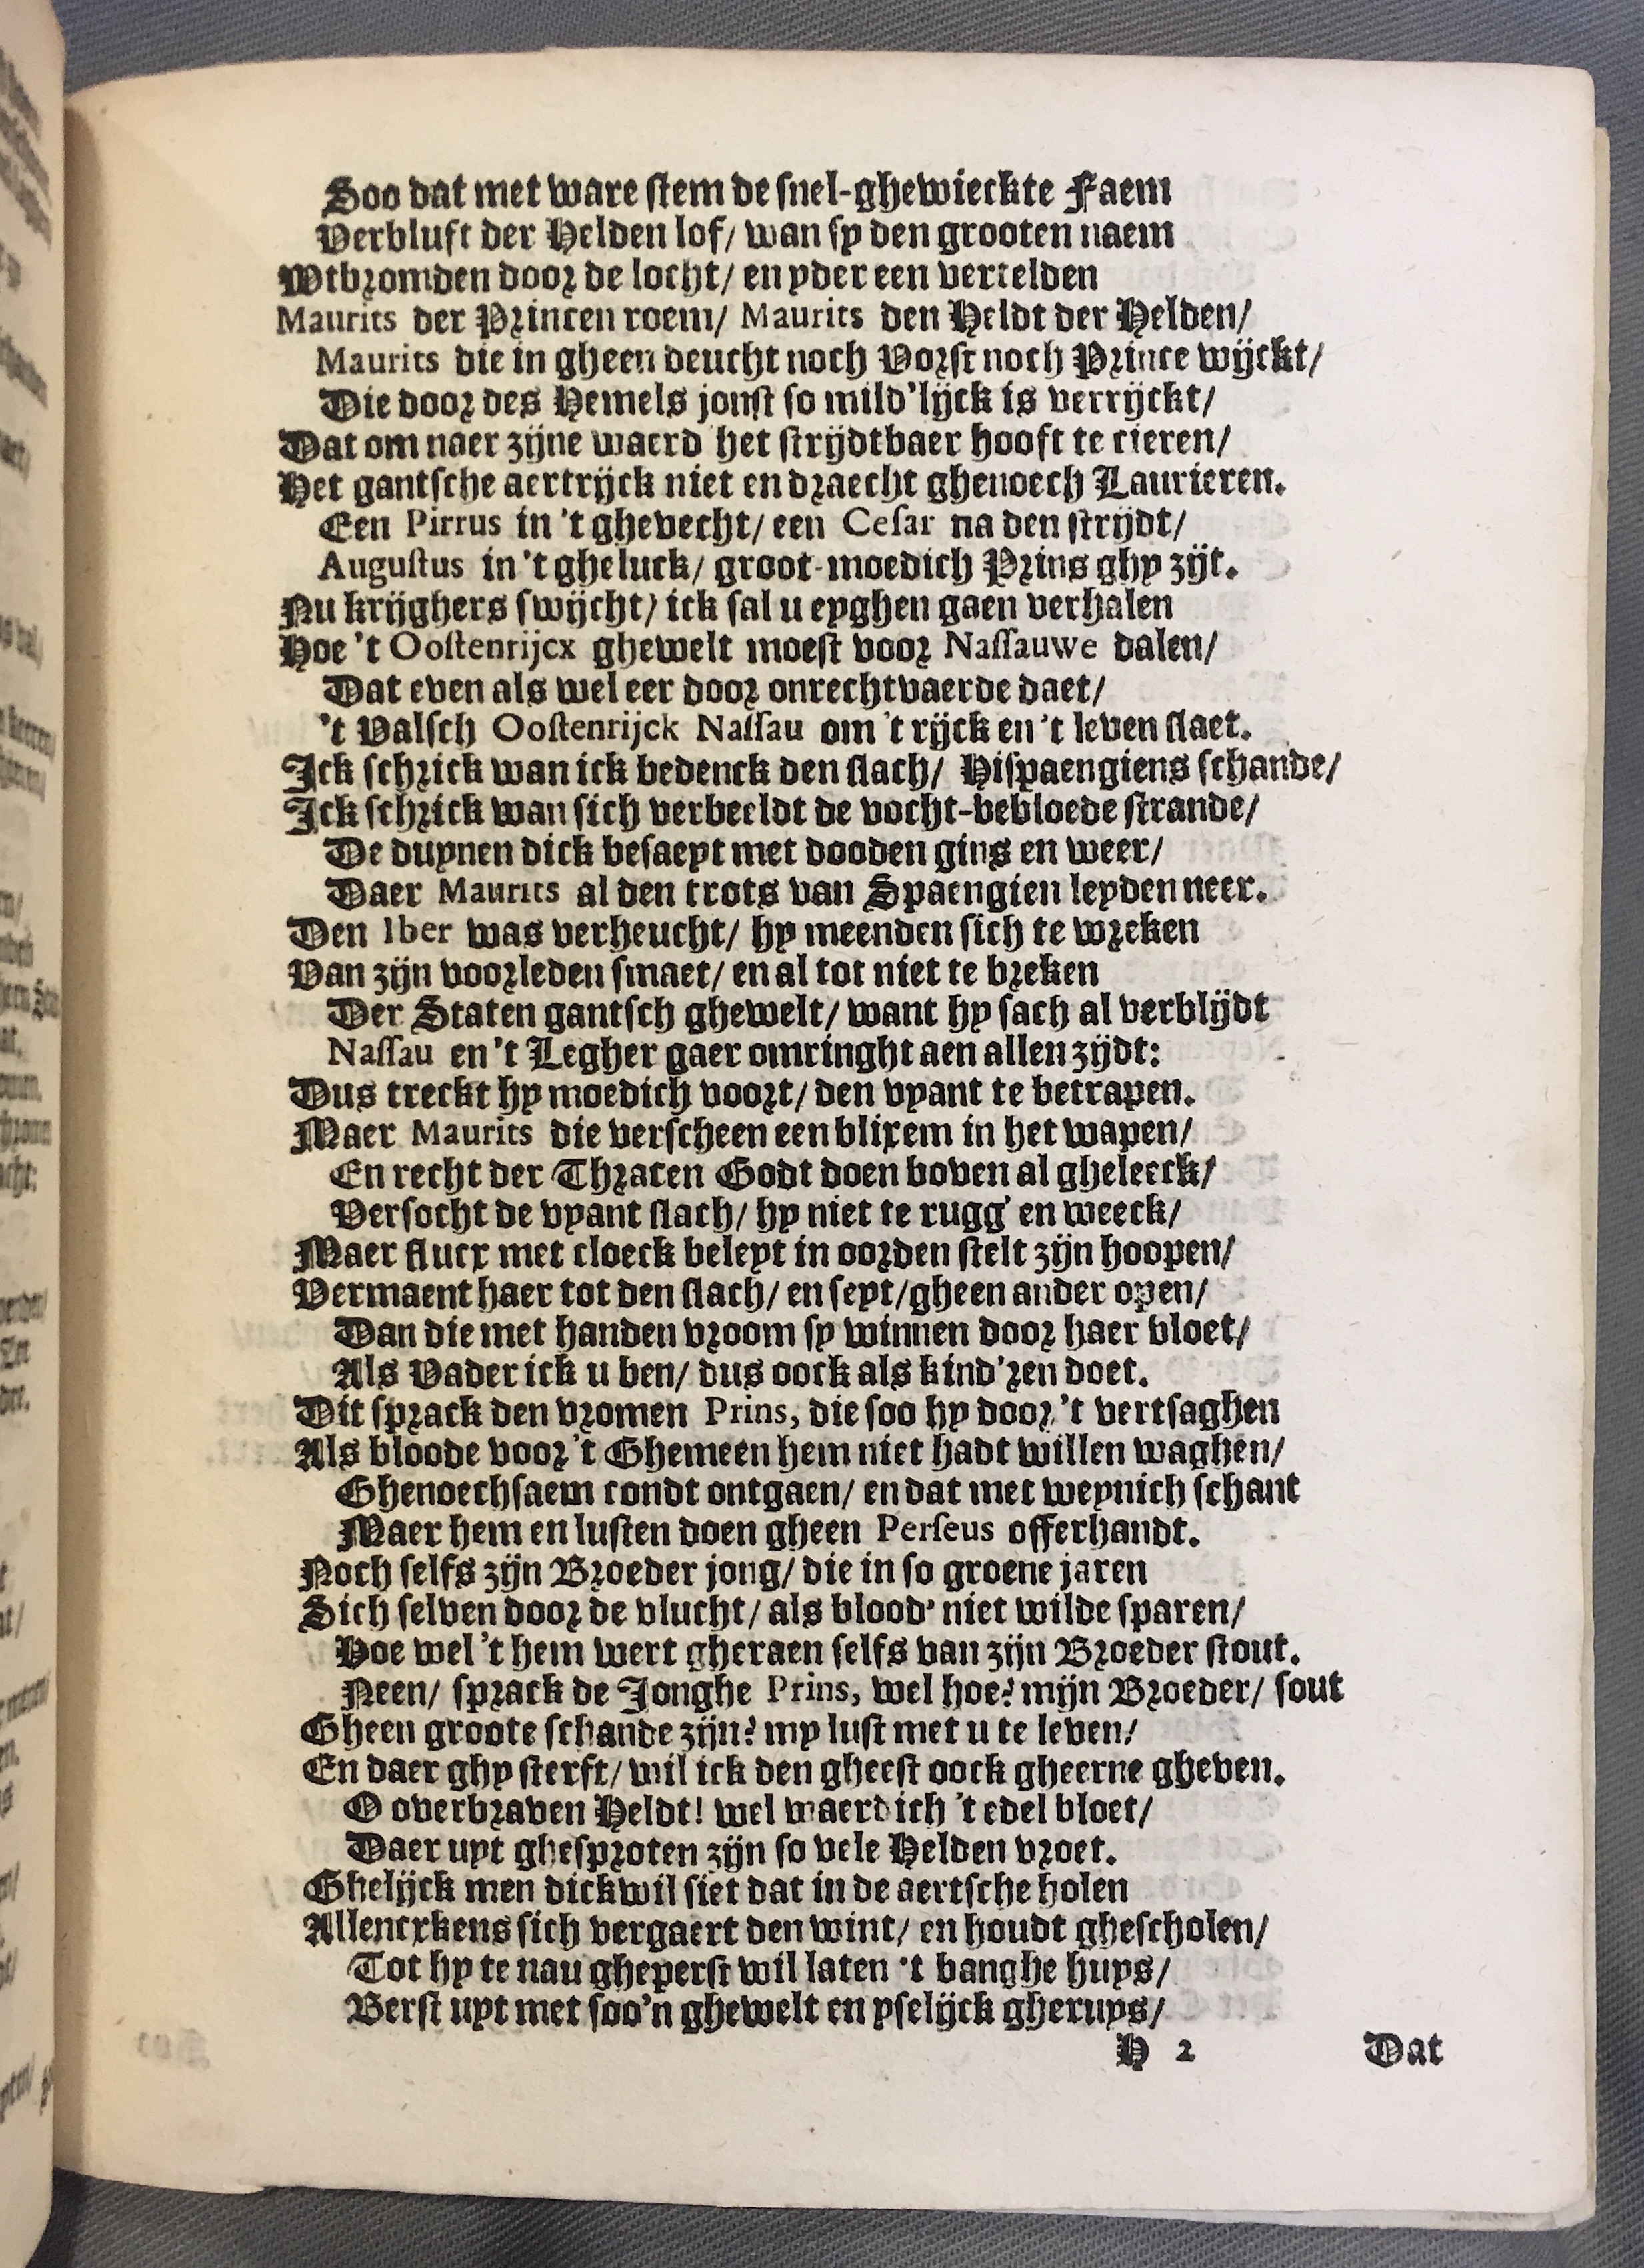 Soo dat met ware stem de snel-ghewieckte Faem
Verbluft der Helden lof/ wan sy den grooten naem
Wtbromden door de locht/ en yder een vertelden
Maurits der Princen roem/ Maurits den Heldt der Helden/
Maurits die in gheen deucht noch Vorst noch Prince wijckt/
Die door des Hemels jonst so mild'lijck is verrijckt/
Dat om naer zijne waerd het strijdtbaer hooft te cieren/
Het gantsche aertrijck niet en draecht ghenoech Laurieren.
Een Pirrus in 't ghevecht/ een Cesar na den strijdt/
Augustus in 't gheluck/ groot-moedich Prins ghy zijt.
Nu krijghers swijcht/ ick sal u eyghen gaen verhalen
Hoe 't Oostenrijcx ghewelt moest voor Nassauwe dalen/
Dat even als wel eer door onrechtvaerde daet/
't Valsch Oostenrijck Nassau om 't rijck en 't leven slaet.
Ick schrick wan ick bedenck den slach/ Hispaengiens schande/
Ick schrick wan sich verbeeldt de vocht-bebloede strande/
De duynen dick besaeyt met dooden gins en weer/
Daer Maurits al den trots van Spaengien leyden neer.
Den Iber was verheucht/ hy meenden sich te wreken
Van zijn voorleden smaet/ en al tot niet te breken
Der Staten gantsch ghewelt/ want hy sach al verblijdt
Nassau en 't Legher gaer omringht aen allen zijdt:
Dus treckt hy moedich voort/ den vyant te betrapen.
Maer Maurits die verscheen een blixem in het wapen/
En recht der Thracen Godt doen boven al gheleeck/
Versocht de vyant slach/ hy niet te rugg' en weeck/
Maer flucx met cloeck beleyt in oorden stelt zijn hoopen/
Vermaent haer tot den slach/ en seyt/gheen ander open/
Dan die met handen vroom sy winnen door haer bloet/
Als Vader ick u ben/ dus oock als kind'ren doet.
Dit sprack den vromen Prins, die soo hy door 't vertsaghen
Als bloode voor 't Ghemeen hem niet hadt willen waghen/
Ghenoechsaem condt ontgaen/ en dat met weynich schant
Maer hem en lusten doen gheen Perseus offerhandt.
Noch selfs zijn Broeder jong/ die in so groene jaren
Sich selven door de vlucht/ als blood' niet wilde sparen/
Hoe wel 't hem wert gheraen selfs van zijn Broeder stout.
Neen/ sprack de Jonghe Prins, wel hoe? mijn Broeder/ sout
Gheen groote schande zijn? my lust met u te leven/
En daer ghy sterft/ wil ick den gheest oock gheerne gheven.
O overbraven Heldt! wel waerdich 't edel bloet/
Daer uyt ghesproten zijn so vele Helden vroet.
Ghelijck men dickwil siet dat in de aertsche holen
Allencxkens sich vergaert den wint/ en houdt ghescholen/
Tot hy te nau gheperst wil laten 't banghe huys/
Berst uyt met soo'n ghewelt en yselijck gheruys/
H 2 Dat